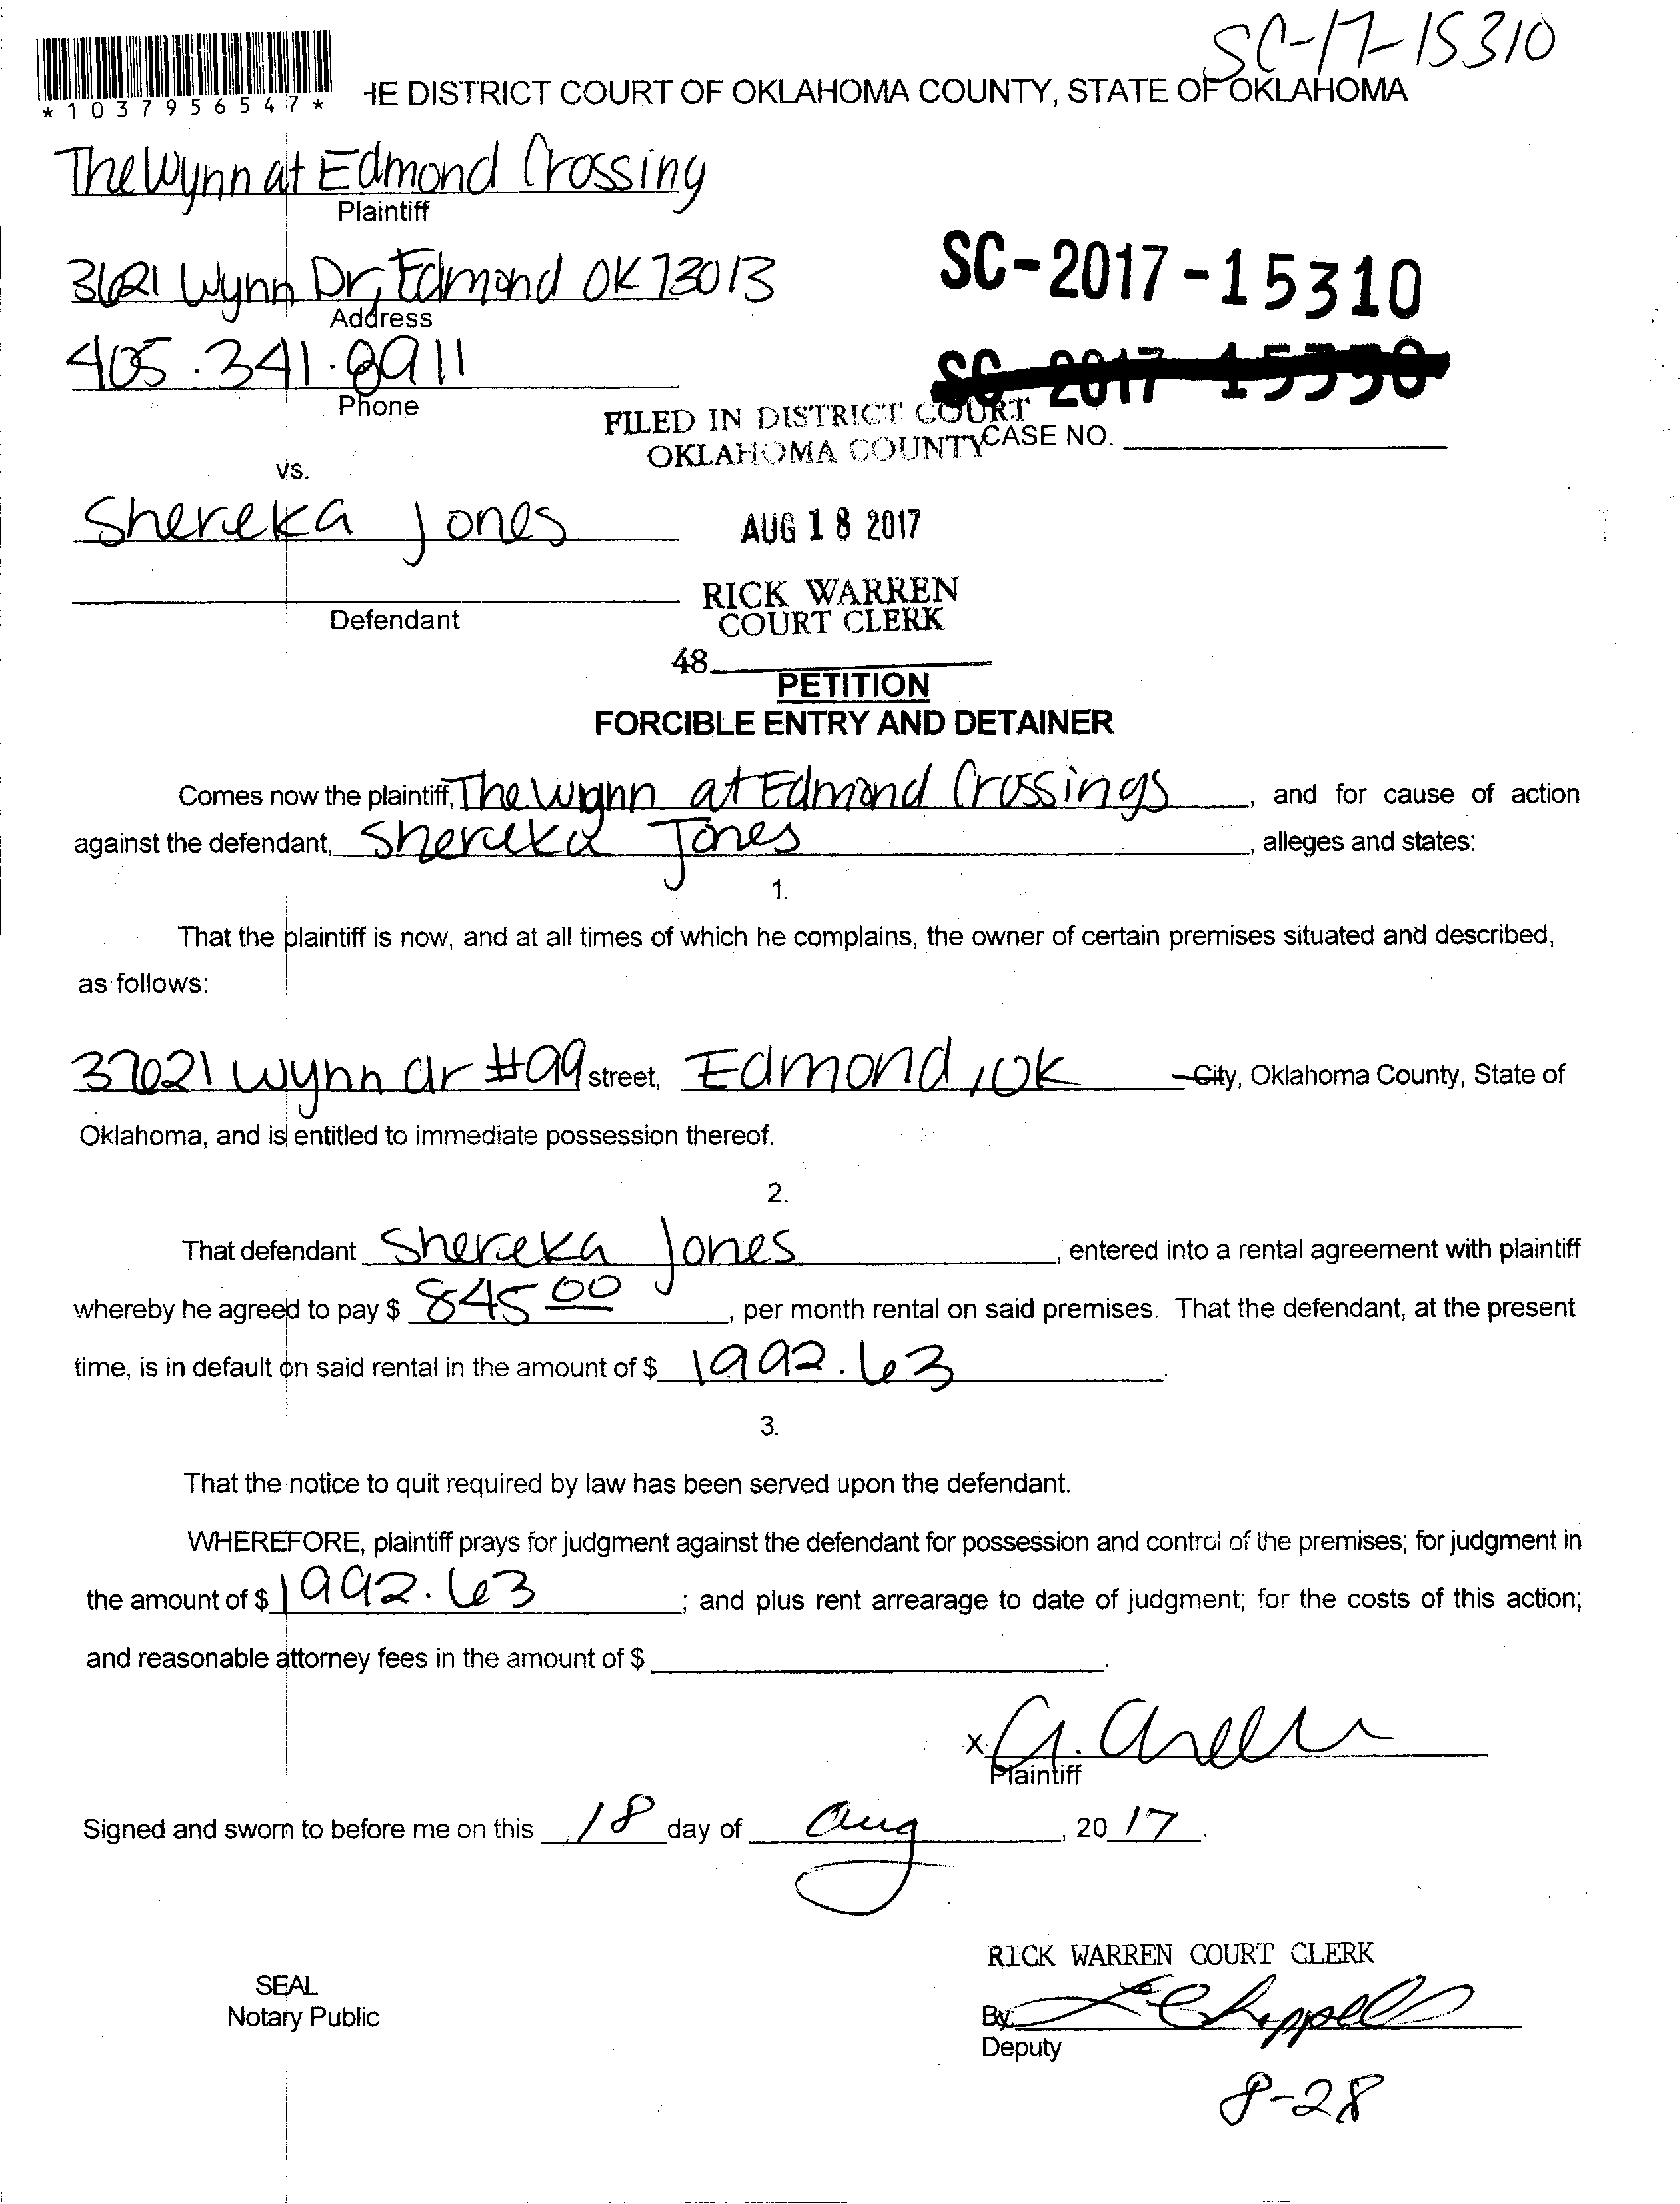 SC-17-15310
*1037956547*
HE DISTRICT COURT OF OKLAHOMA COUNTY, STATE OF OKLAHOMA
The Wynn at Edmond Crossing
Plaintiff
3621 Wynn Dr, Edmond OK 73013
Address
SC-2017-15310
405.341.8911
Phone
FILED IN DISTRICT COURT
OKLAHOMA COUNTY
CASE NO.
vs.
Shereka Jones
AUG 18 2017
Defendant
RICK WARREN
COURT CLERK
48
PETITION
FORCIBLE ENTRY AND DETAINER
Comes now the plaintiff, The Wynn at Edmond Crossings, and for cause of action
against the defendant, Shereka Jones, alleges and states:
1.
That the plaintiff is now, and at all times of which he complains, the owner of certain premises situated and described,
as follows:
Wynn dr #99 street, Edmond, OK City, Oklahoma County, State of
Oklahoma, and is entitled to immediate possession thereof.
2.
That defendant Shereka Jones, entered into a rental agreement with plaintiff
whereby he agreed to pay $ 845 00, per month rental on said premises. That the defendant, at the present
time, is in default on said rental in the amount of $ 1992.63.
3.
That the notice to quit required by law has been served upon the defendant.
WHEREFORE, plaintiff prays for judgment against the defendant for possession and control of the premises; for judgment in
the amount of $ 1992.63; and plus rent arrearage to date of judgment; for the costs of this action;
and reasonable attorney fees in the amount of $ .
x
Plaintiff
Signed and sworn to before me on this 18 day of Aug, 20 17.
RICK WARREN COURT CLERK
SEAL
Notary Public
By
Deputy
8-28